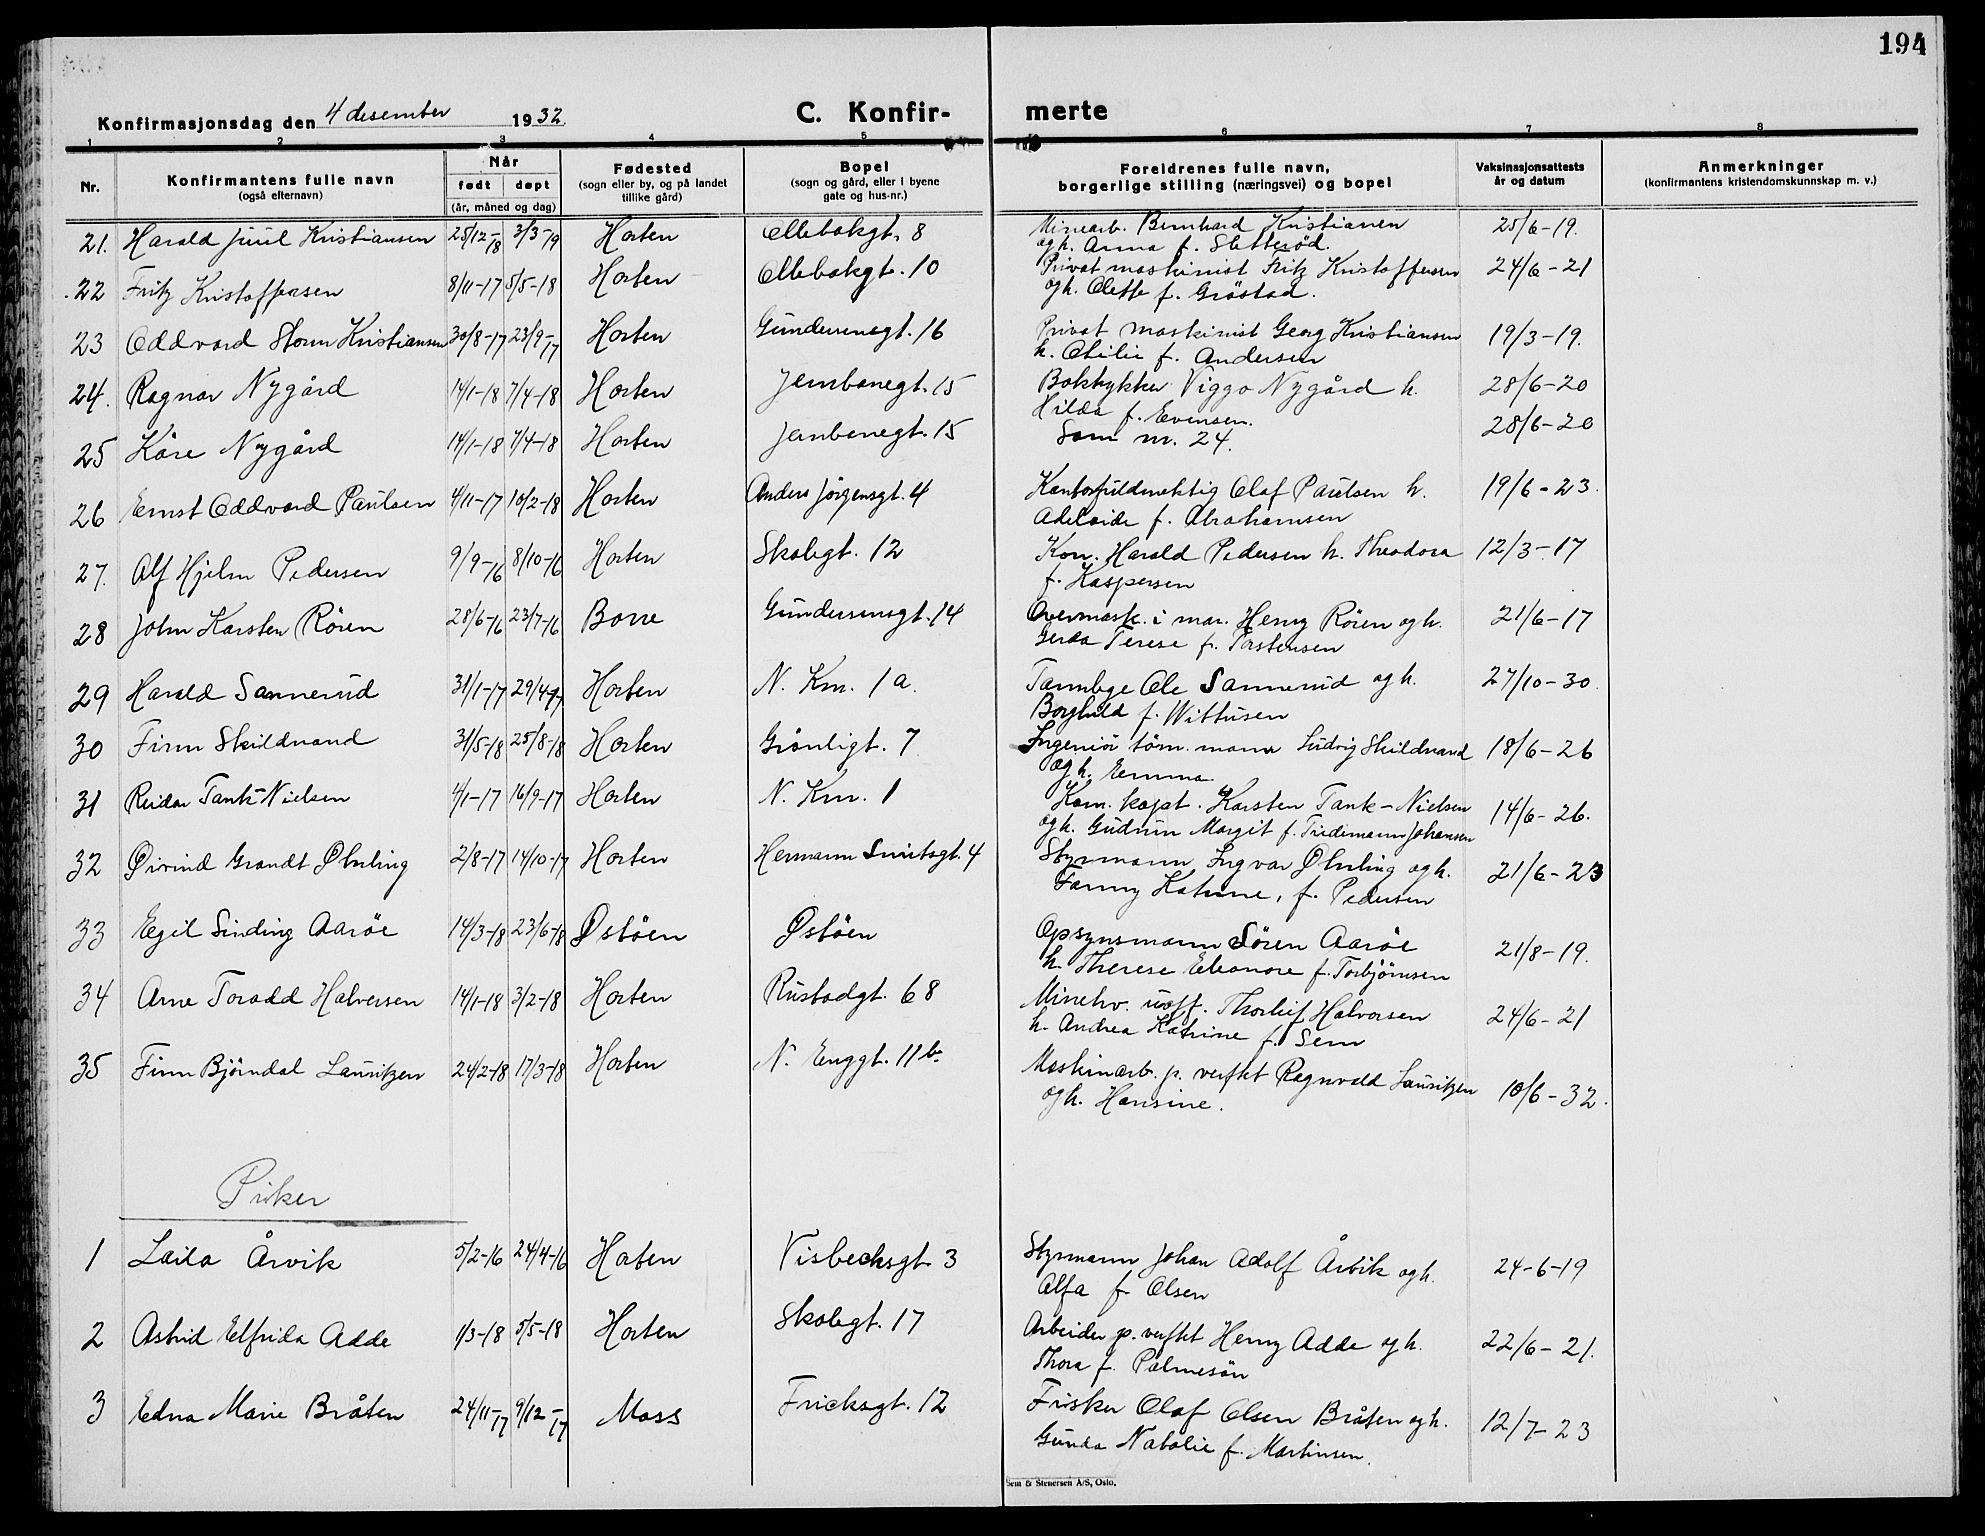 194
Konfirmasjonsdag den 4 desember 1932
C. Konfir- merte
1 2 3 4 5 6 7 8
Nr.
Konfirmantens fulle navn
(også efternavn)
Når
født døpt
(år, måned og dag)
Fødested
(sogn eller by, og på landet
tillike gård)
Bopel
(sogn og gård, eller i byene
gate og hus-nr.)
Foreldrenes fulle navn,
borgerlige stilling (næringsvei) og bopel
Vaksinasjonsattests
år og datum
Anmerkninger
(konfirmantens kristendomskunnskap m. v.)
21. Harald Juul Kristiansen 25/12-18 3/3-19 Horten Ollebakgt. 8 Minearb. Bernhard Kristiansen 25/6-19.
og h. Anna f. Sletterød.
22 Fritz Kristoffersen 8/11-17 5/5-18 Horten Ollebakgt. 10 Privat maskinist Fritz Kristoffersen 24/6-21
og h. Olette f. Gröstad.
23 Oddvard Storm Kristiansen 30/8-17 23/9-17 Horten Gundersensgt. 16 Privat maskinist Georg Kristiansen 19/3-19.
h. Otilie f. Andersen
24. Ragnar Nygård 14/1-18 7/4-18 Horten Jernbanegt. 15 Boktykker Viggo Nygård h. 28/6-20
Hilda f. Evensen.
25 Kåre Nygård 14/1-18 7/4-18 Horten Jernbanegt. 15 Som nr. 24. 28/6-20
26 Ernst Oddvard Paulsen 4/11-17 10/2-18 Horten Anders Jörgensgt. 4 Kontorfuldmektig Olaf Paulsen h. 19/6-23.
Adelaide f. Abrahamsen
27. Alf Hjelm Pedersen 9/9-16 8/10-16 Horten Skolegt. 12 Kon. Harald Pedersen h. Theodora 12/3-17
f. Kaspersen
28 John Karsten Rören 28/6-16 23/7-16 Borre Gundersensgt. 14 Overmask. i mar. Henry Rören og h. 21/6-17
Gerda Terese f. Torstensen
29 Harald Sannerud 31/1-17 29/4-17 Horten N. Km. 1 a. Tannlege Ole Sannerud og h. 27/10-30.
Borghild f. Withusen
30 Finn Skildvand 31/5-18 25/8-18 Horten Grönligt. 7 Ingeniör töm. mann Ludvig Skildvand 18/6-26
og h. Emma.
31 Reidar Tank-Nielsen 4/1-17 16/9-17 Horten N. Km. 1 Kom. kapt. Karsten Tank-Nielsen 14/6-26.
og h. Gudrun Margit f. Tidemann Johansen
32 Øivind Grandt Øhrling 2/8-17 14/10-17 Horten Hermann Smitsgt. 4 Styrmann Ingvar Øhrling og h. 21/6-23
Fanny Katrine, f. Pedersen
33 Egil Sinding Aaröe 14/3-18 23/6-18 Østöen Østöen Opsynsmann Sören Aaröe 21/8-19.
h. Therese Eleonore f. Torbjörnsen
34 Arne Toradd Halvorsen 14/1-18 3/2-18 Horten Rustadgt. 68 Minehv. uoff. Thorleif Halvorsen 24/6-21
h. Andrea Katrine f. Sem
35 Finn Björndal Lauritzen 24/2-18 17/3-18 Horten N. Enggt. 11 b. Maskinarb. p. verftet Ragnvald Lauritzen 10/6-32.
og h. Hansine.
Piker
1 Laila Årvik 5/2-16 24/4-16 Horten Visbecksgt 3 Styrmann Johan Adolf Årvik og h. 24-6-19
Alfa f. Olsen
2 Astrid Elfrida Adde 1/3-18 5/5-18 Horten Skolegt. 17 Arbeider p. verftet Henry Adde og h. 22/6-21.
Thora f. Palmesön
3 Edna Marie Bråten 24/11-17 9/12-17 Moss Fricksgt. 12 Fisker Olaf Olsen Bråten og h. 12/7-23
Gunda Natalie f. Martinsen.
Sem & Stenersen A/S, Oslo.